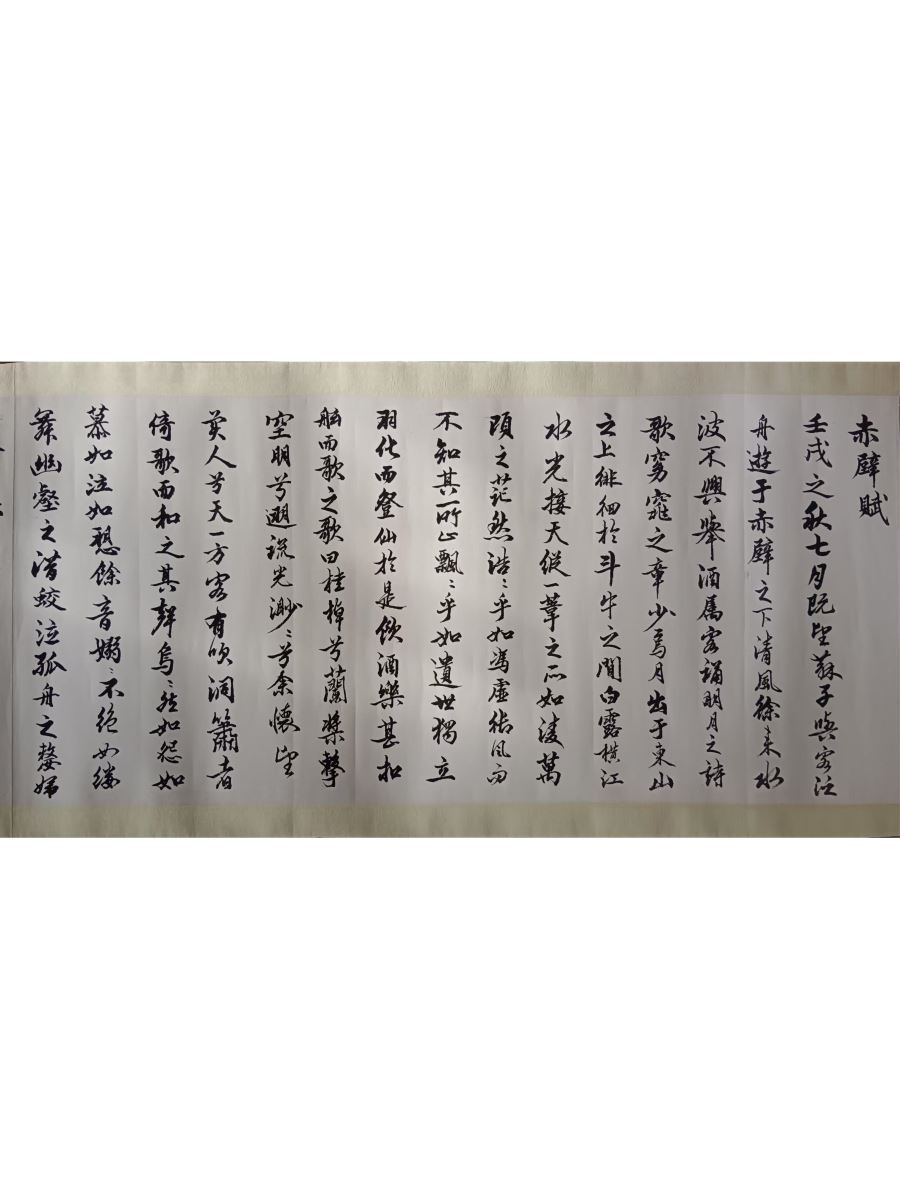 赤壁賦
壬戌之秋七月既望蘇子與客泛
舟遊于赤壁之下清風徐來水
波不興舉酒屬客誦明月之詩
歌窈窕之章少焉月出于東山
之上徘徊於斗牛之間白露橫江
水光接天縱一葦之所如淩萬
頃之茫然浩〻乎如馮虛御風而
不知其所止飄〻乎如遺世獨立
羽化而登仙於是飲酒樂甚扣
舷而歌之歌曰桂棹兮蘭槳擊
空明兮遡流光渺〻兮余懷望
美人兮天一方客有吹洞簫者
倚歌而和之其聲烏〻然如怨如
慕如泣如愬餘音嫋〻不絕如縷
舞幽壑之潛蛟泣孤舟之嫠婦